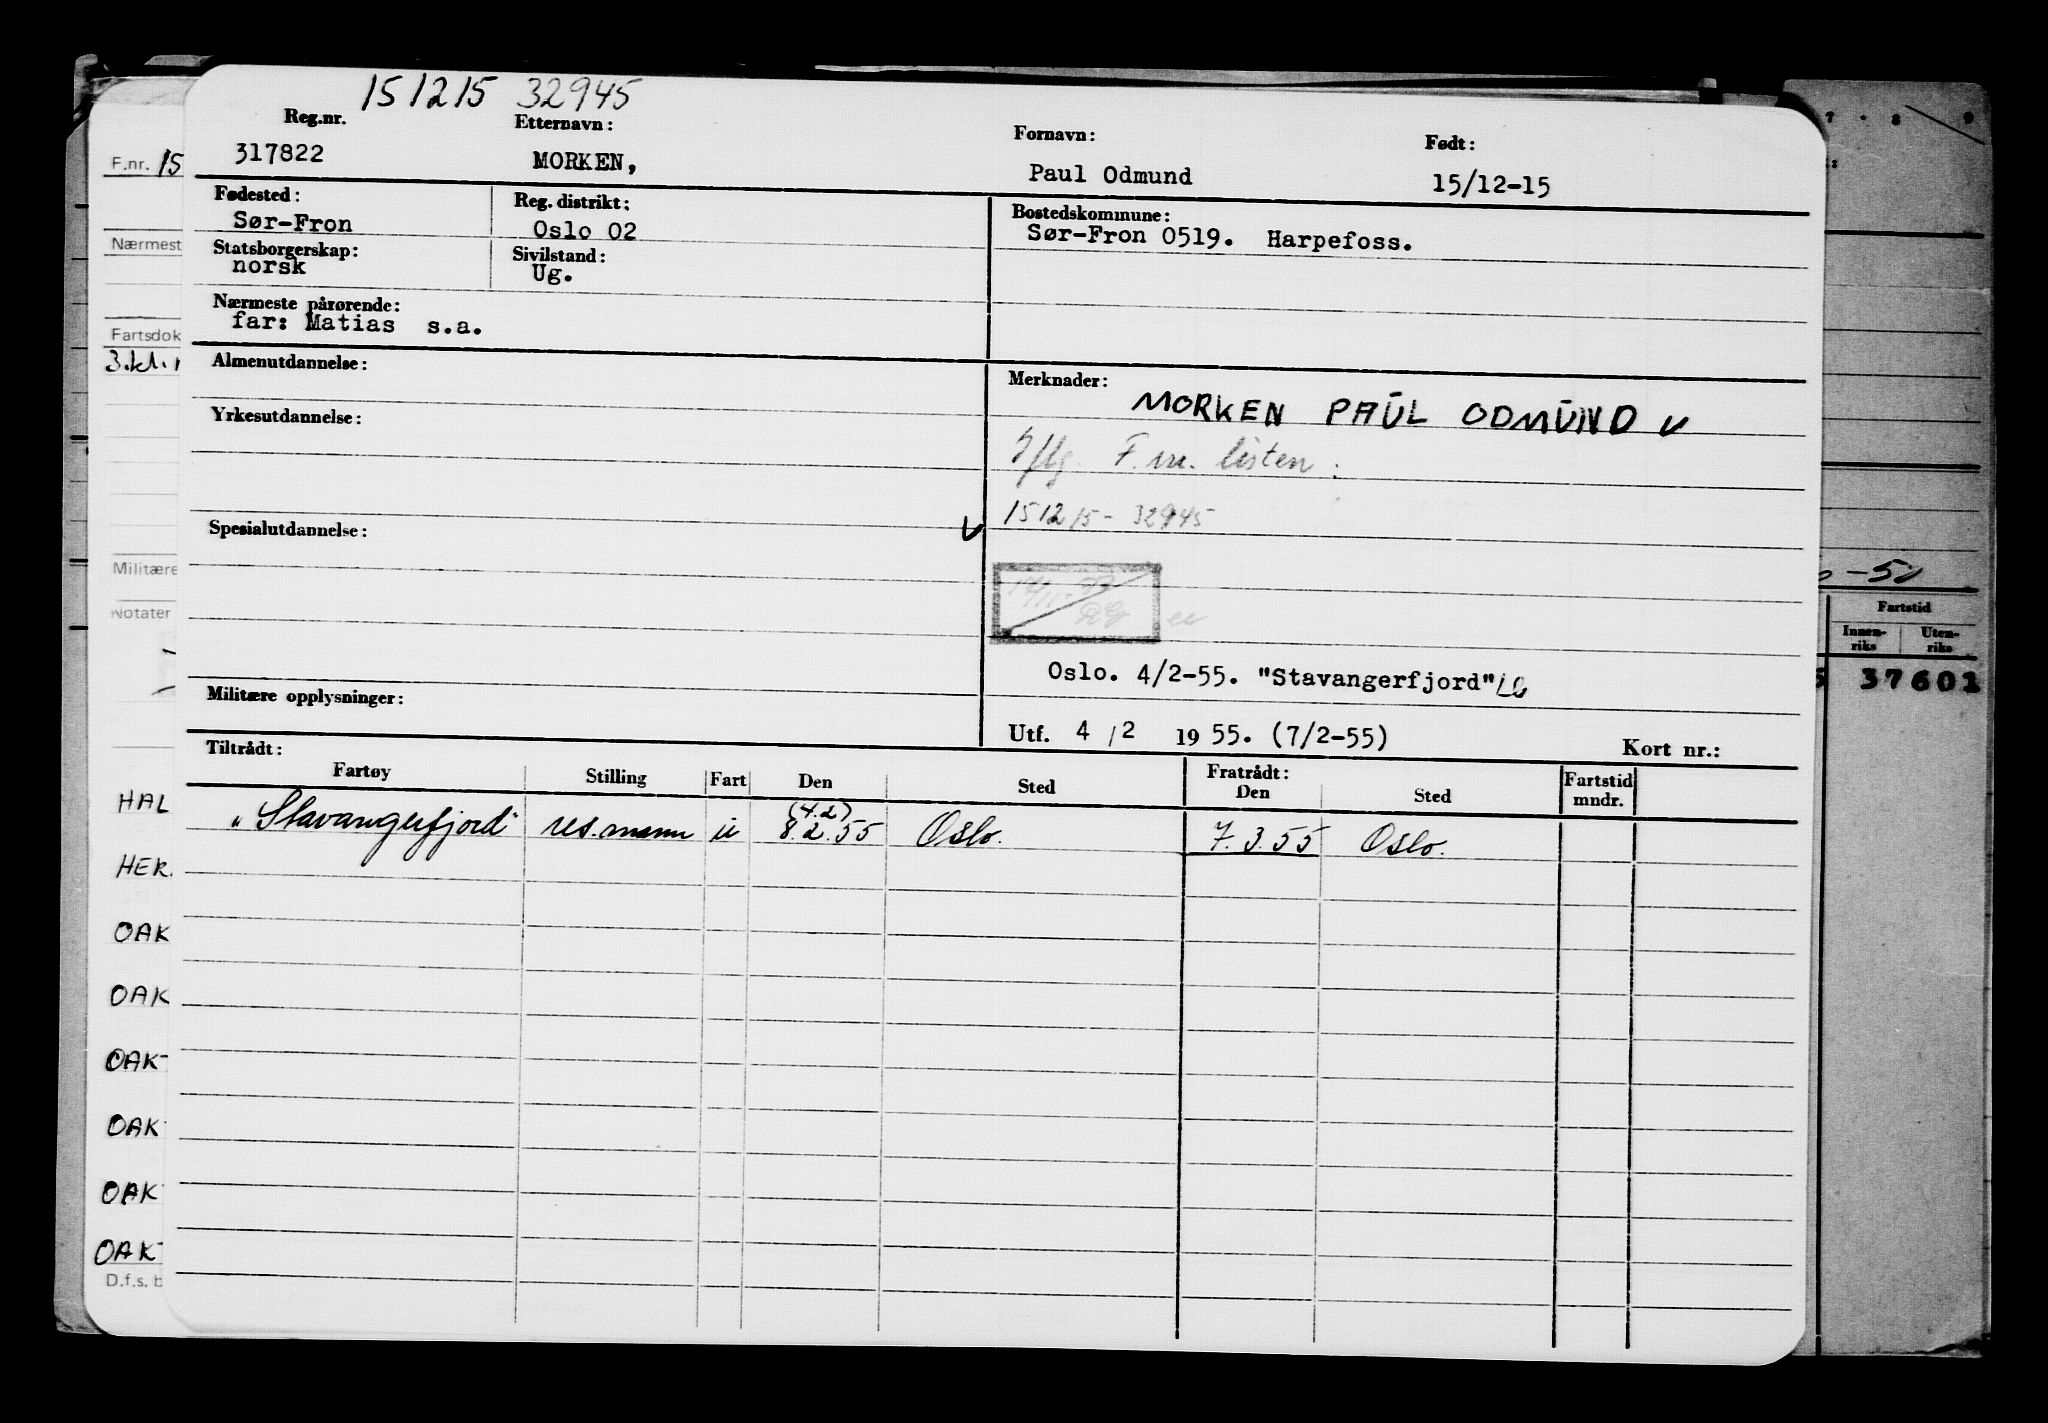 151215 32945
Reg.nr. Etternavn: Fornavn: Født:
317822 MORKEN, Paul Odmund 15/12-15
Fødested: Reg. distrikt: Bostedskommune:
Sør-Fron Oslo 02 Sør-Fron 0519. Harpefoss.
Statsborgerskap: Sivilstand:
norsk Ug.
Nærmeste pårørende:
far: Matias s.a.
Almenutdannelse: Merknader:
MORKEN PAUL ODMUND
Yrkesutdannelse:
Iflg. F.nr. listen:
151215-32945
Spesialutdannelse:
Oslo. 4/2-55. "Stavangerfjord"
Militære opplysninger:
Utf. 4/2 1955. (7/2-55) Kort nr.:
Tiltrådt: Fratrådt:
Fartøy Stilling Fart Den Sted Den Sted Fartstid mndr.
(4.2)
"Stavangerfjord" res.mann u 8.2.55 Oslo. 7.3.55 Oslo.
F.nr. 15
Nærmest
Fartsdok
3.kl.
Militære
Notater
HAL
HER.
OAK
OAK
OAK
OAK
OAK
OAK
D.f.s. b
7 8 9
-50
Fartstid
Innen-riks Uten-riks
37601